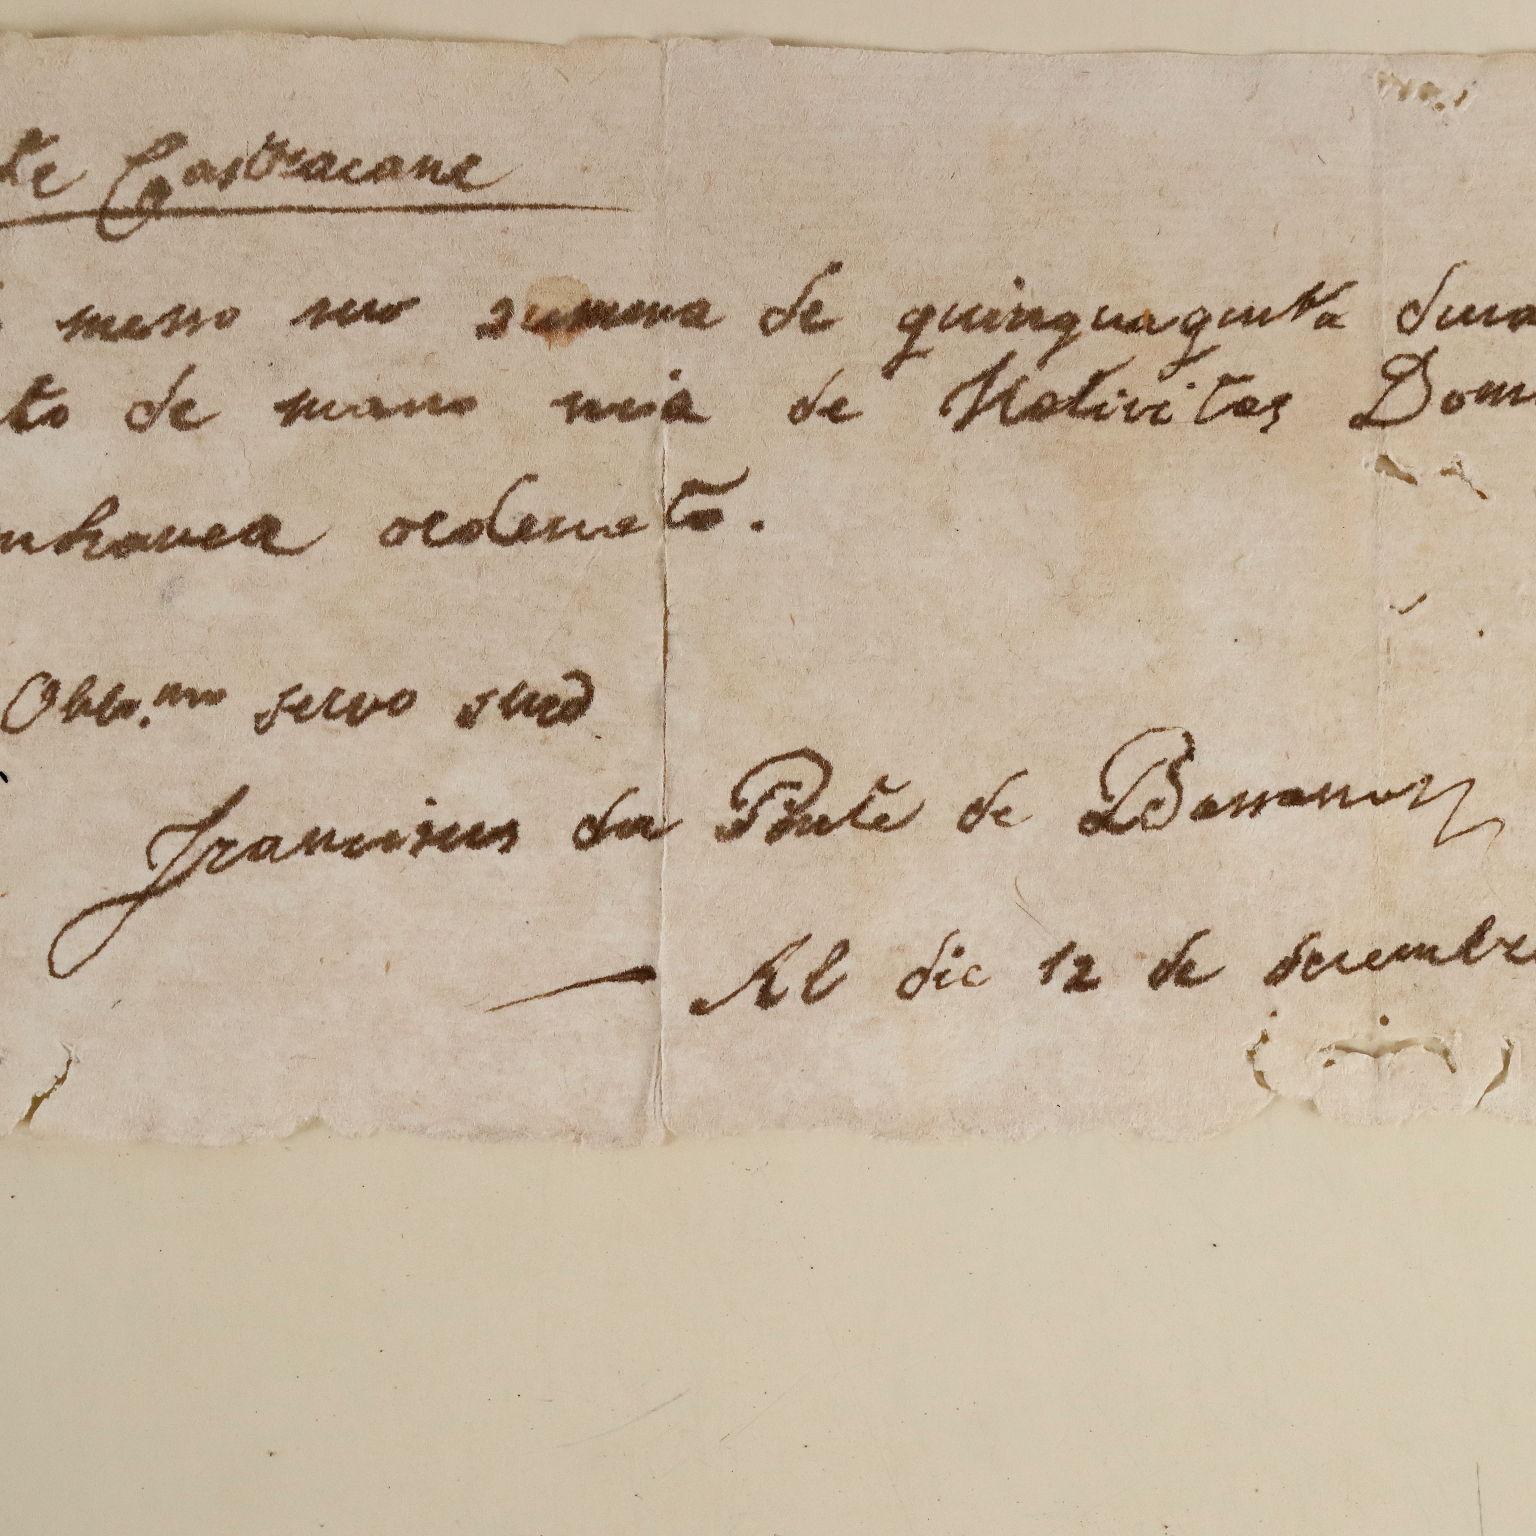 te Castracane
messo suo summa de quinquaginta duca
to de mano mia de Nativitas Dom
ordenato.
Obbl.mo servo suo
Franciscus da Ponte de Bassano
Al die 12 de decembre